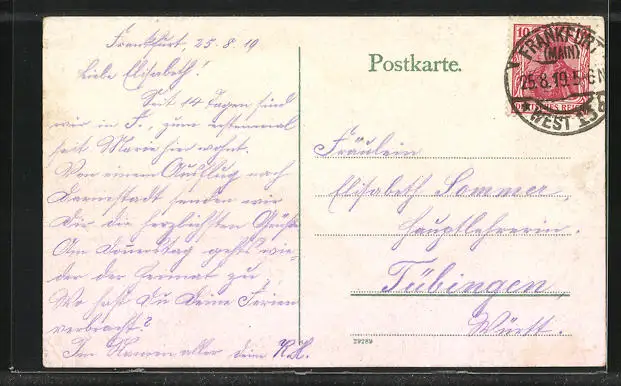 Frankfurt, 25.8.19
Liebe Elisabeth!
Seit 14 Tagen sind
wir in F., zum erstenmal
seit Marie hier wohnt.
Von einem Ausflug nach
Darmstadt senden wir
Dir die herzlichsten Grüße.
Am Donnerstag gehts wie-
der der Heimat zu.
Wo hast Du Deine Ferien
verbracht?
Im Namen aller deine R.H.
Postkarte.
10
FRANKFURT
(MAIN)
25.8.19.5-6N
* WEST 13
Fräulein
Elisabeth Sommer,
Hauptlehrerin.
Tübingen,
Württ.
29289